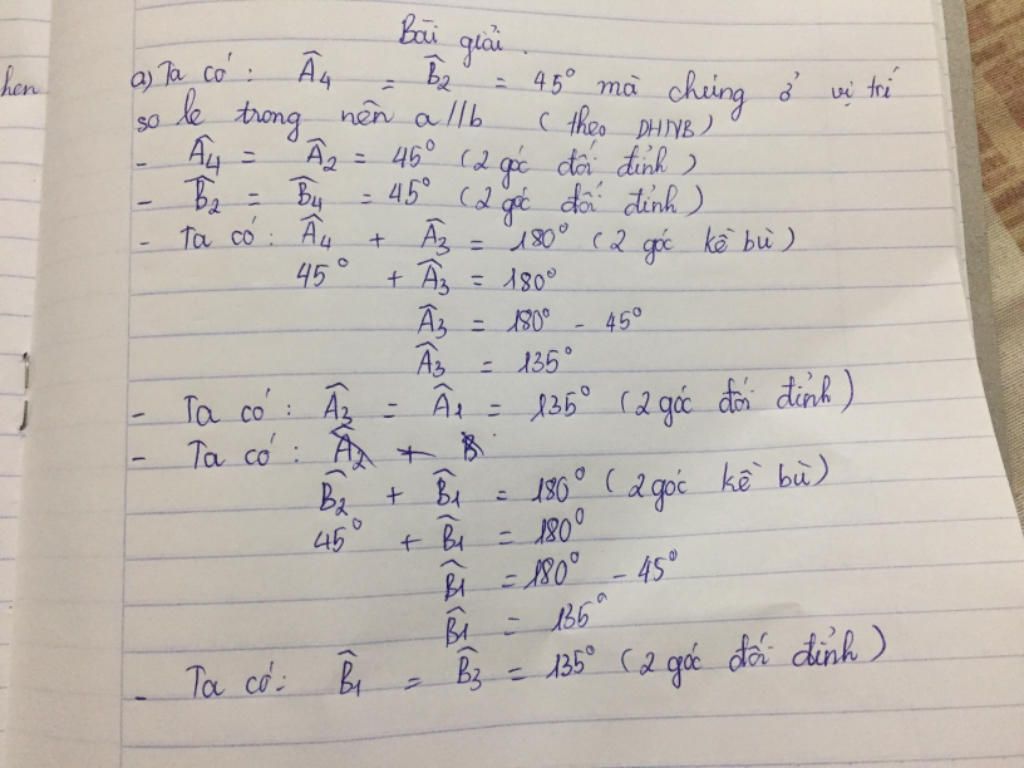 hen
Bài giải.
a) Ta có: Â₄ = B̂₂ = 45° mà chúng ở vị trí
so le trong nên a//b (theo DHNB)
- Â₄ = Â₂ = 45° (2 góc đối đỉnh)
- B̂₂ = B̂₄ = 45° (2 góc đối đỉnh)
- Ta có: Â₄ + Â₃ = 180° (2 góc kề bù)
45° + Â₃ = 180°
Â₃ = 180° - 45°
Â₃ = 135°
- Ta có: Â₃ = Â₁ = 135° (2 góc đối đỉnh)
- Ta có: Â₂ + B
B̂₂ + B̂₁ = 180° (2 góc kề bù)
45° + B̂₁ = 180°
B̂₁ = 180° - 45°
B̂₁ = 135°
- Ta có: B̂₁ = B̂₃ = 135° (2 góc đối đỉnh)